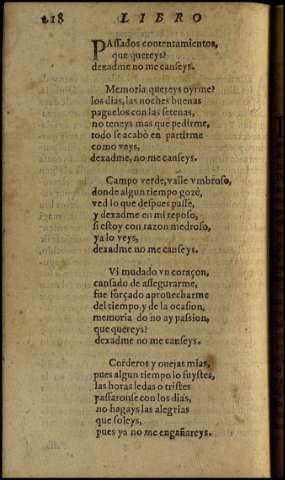 218 LIBRO
PAssados contentamientos,
que quereys?
dexadme no me canseys.
Memoria quereys oyrme?
los dias, las noches buenas
paguelos con las setenas,
no teneys mas que pedirme,
todo se acabò en partirme
como veys,
dexadme, no me canseys.
Campo verde, valle vmbroso,
donde algun tiempo gozè,
ved lo que despues passè,
y dexadme en mi reposo,
si estoy con razon medroso,
ya lo veys,
dexadme no me canseys.
Vi mudado vn coraçon,
cansado de assegurarme,
fue forçado aprouecharme
del tiempo, y de la ocasion,
memoria do no ay passion,
que quereys?
dexadme no me canseys.
Corderos y ouejas mias,
pues algun tiempo lo fuystes,
las horas ledas o tristes
passaronse con los dias,
no hagays las alegrias
que soleys,
pues ya no me engañareys.